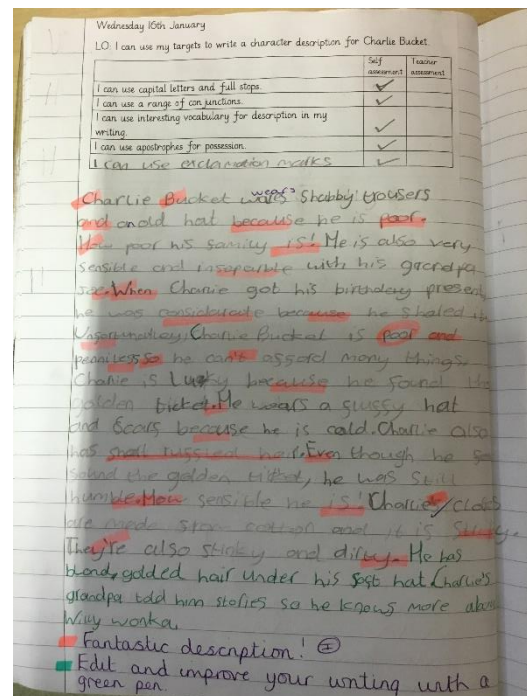 Wednesday 16th January
LO: I can use my targets to write a character description for Charlie Bucket.
Self assessment Teacher assessment
I can use capital letters and full stops.
I can use a range of conjunctions.
I can use interesting vocabulary for description in my writing.
I can use apostrophes for possession.
I can use exclamation marks
Charlie Bucket wears Shabby trousers
and an old hat because he is poor.
How poor his family is! He is also very
sensible and inseparable with his grandpa
Joe. When Charlie got his birthday present
he was because he shared
Charlie Bucket is poor and
penniless so he can't afford many things.
Charlie is Lucky because he found the
golden ticket. He wears a fluffy hat
and because he is cold. Charlie also
has small Even though he
found the golden ticket, he was still
humble. How sensible he is! Charlie's
are made from cotton and it is
They're also stinky and dirty. He has
blond, golded hair under his soft hat. Charlie's
grandpa told him stories so he knows more about
Willy Wonka.
Fantastic description! I
Edit and improve your writing with a
green pen.